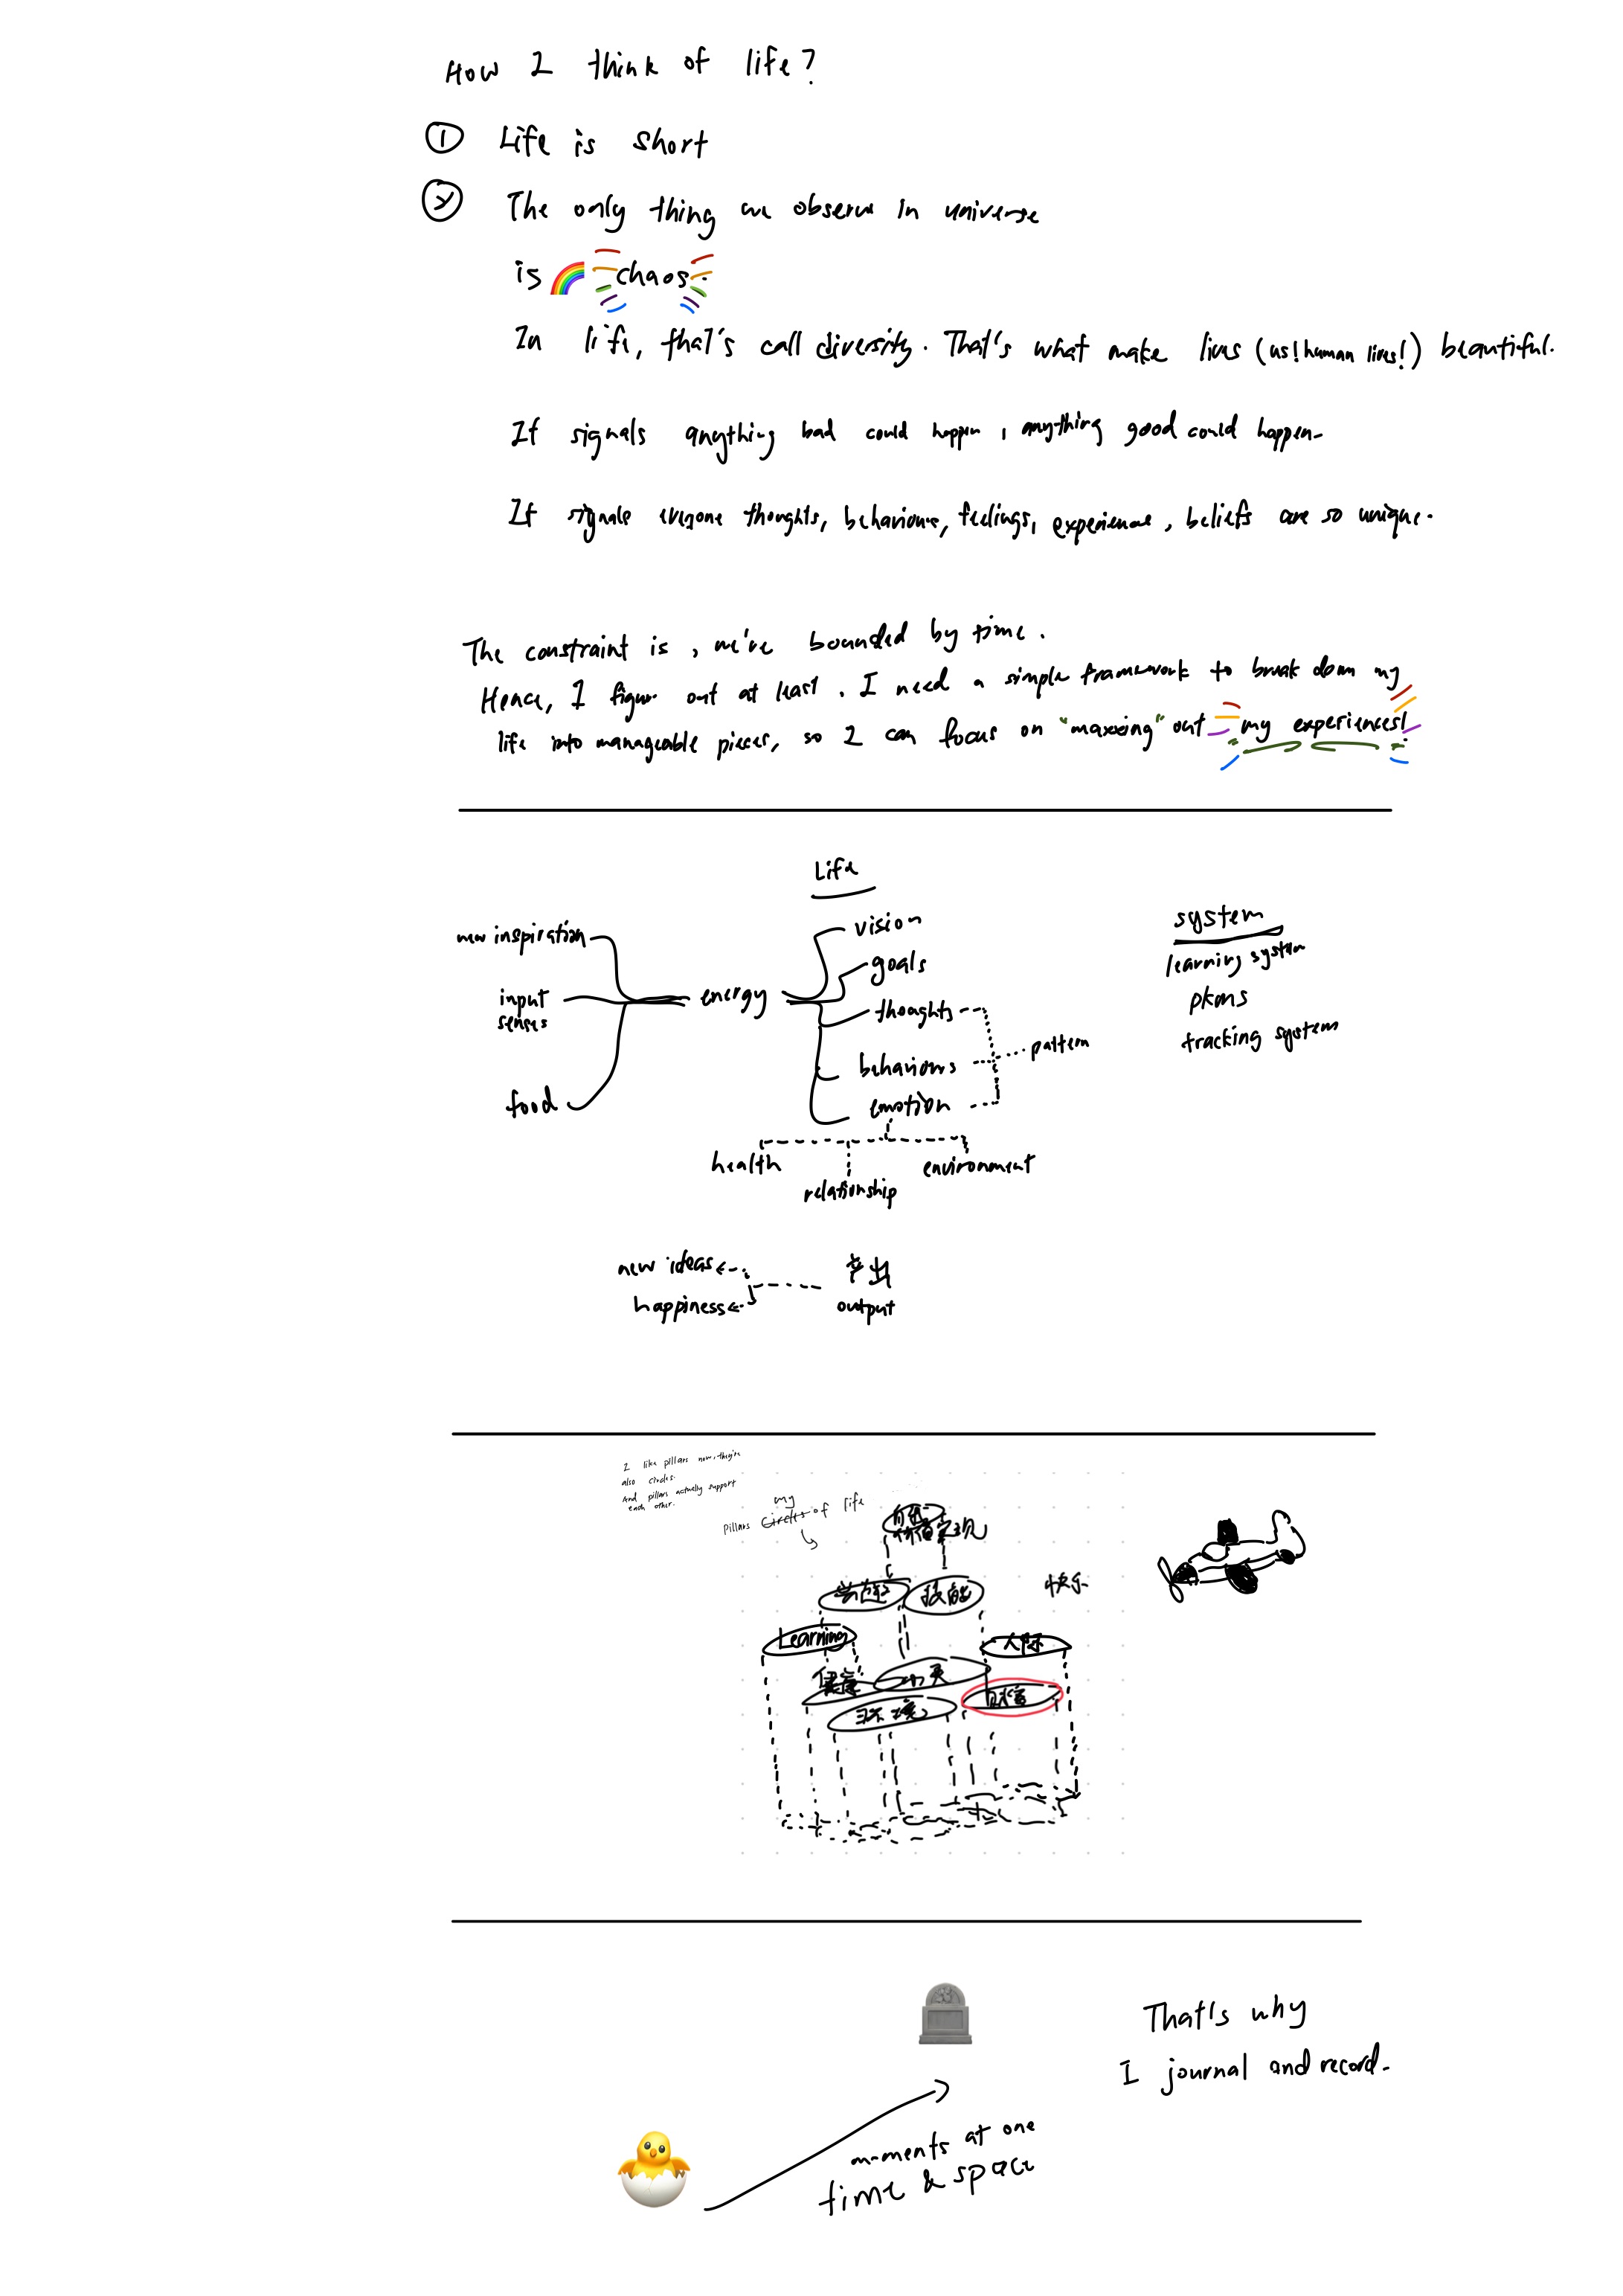 How I think of life?
① Life is short
② The only thing we observe in universe
is chaos.
In life, that's call diversity. That's what make lives (us! human lives!) beautiful.
If signals anything bad could happen, anything good could happen.
If signals everyone thoughts, behaviours, feelings, experience, beliefs are so unique.
The constraint is, we're bounded by time.
Hence, I figure out at least. I need a simple framework to break down my
life into manageable pieces, so I can focus on "maxxing" out my experiences!
Life
new inspiration
input
senses
food
energy
vision
goals
thoughts
behaviours
emotion
pattern
health
relationship
environment
system
learning system
pkms
tracking system
new ideas
happiness
产出
output
I like pillars now, they're
also circles.
And pillars actually support
each other.
my
Pillars Circles of life
自我
价值实现
技能
快乐
Learning
人际
健康
环境
That's why
I journal and record.
moments at one
time & space